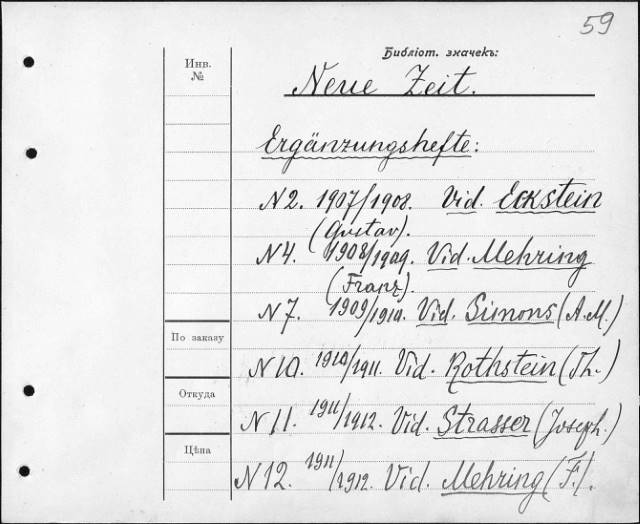 59
Библіот. значекъ:
Инв.
№
Neue Zeit.
Ergänzungshefte:
N2. 1907/1908. Vid. Eckstein
(Gustav).
N4. 1908/1909. Vid. Mehring
(Franz).
N7. 1909/1910. Vid. Simons (A.M.)
По заказу
N10. 1910/1911. Vid. Rothstein (Th.)
Откуда
N11. 1911/1912. Vid. Strasser (Joseph.)
Цѣна
N12. 1911/1912. Vid. Mehring (F.).